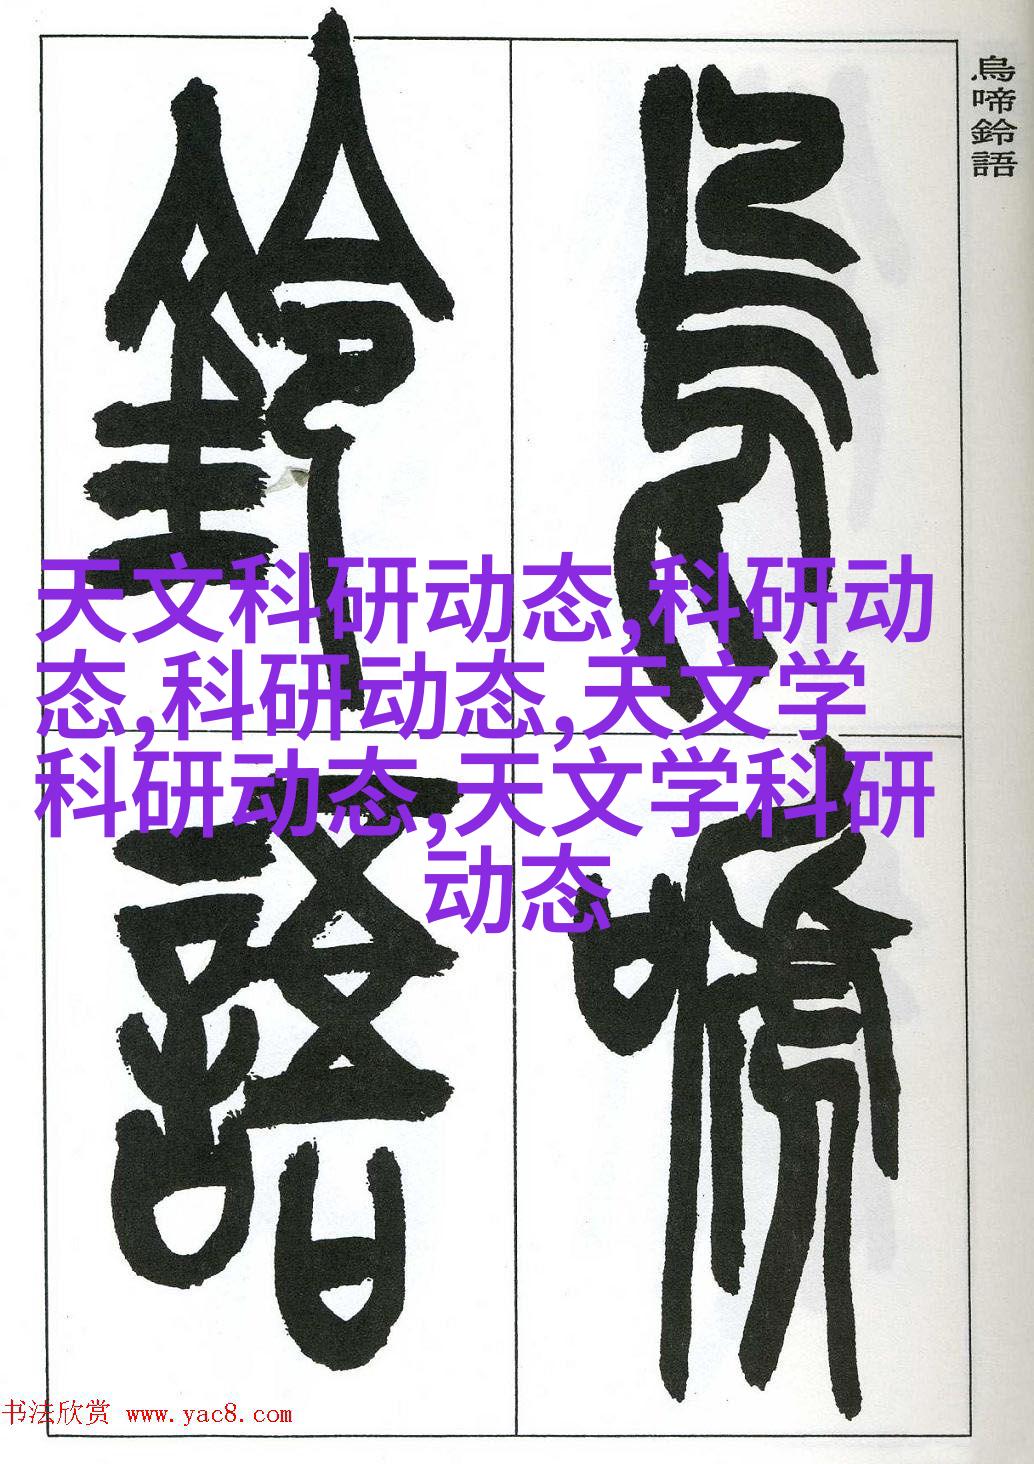 烏啼鈴語
天文科研动态,科研动
态,科研动态,天文学
科研动态,天文学科研
动态
烏啼
鈴語
书法欣赏 www.yac8.com